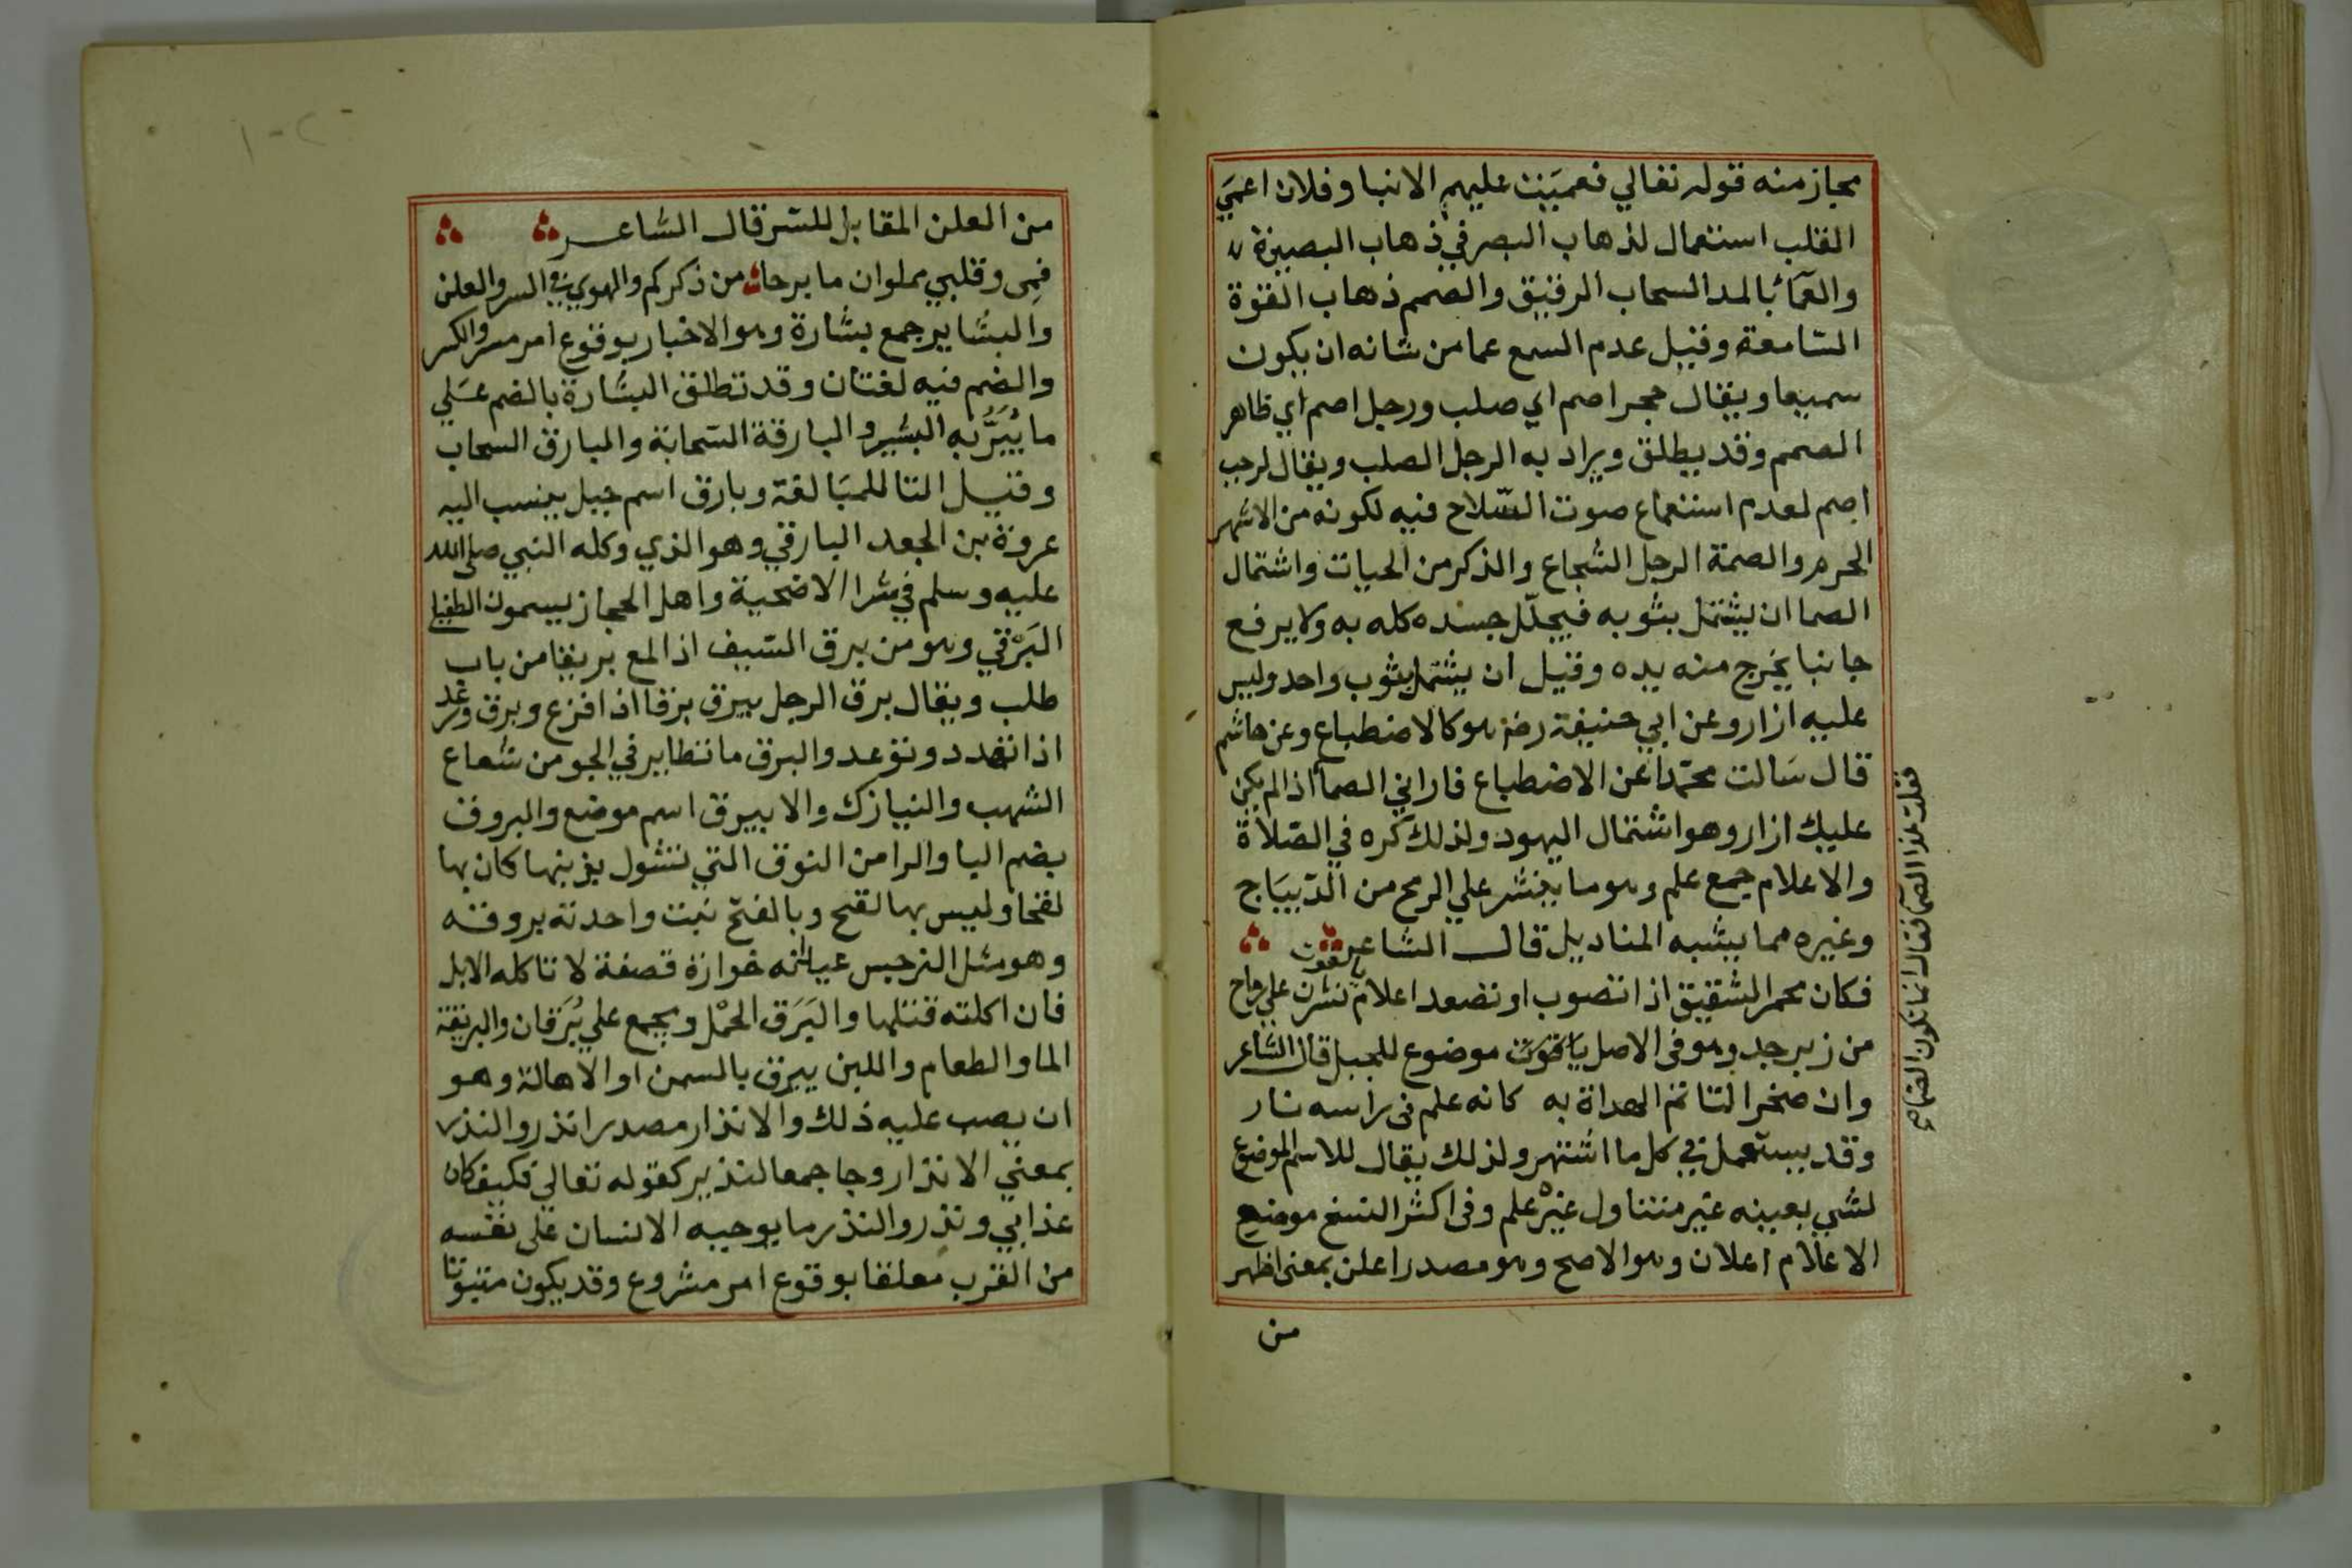 مجاز منه قوله تعالي فعميت عليهم الانبا وفلان اعمي
القلب استعمال لذهاب البصر في ذهاب البصيرة
والعمآء بالمد السحاب الرقيق والصمم ذهاب القوة
السامعة وقيل عدم السمع عما من شانه ان يكون
سميعا ويقال حجر اصم اي صلب ورجل اصم اي ظاهر
الصمم وقد يطلق ويراد به الرجل الصلب ويقال لرجب
اصم لعدم استعماع صوت السّلاح فيه لكونه من الاشهر
الحرم والصمة الرجل الشجاع والذكر من الحيات واشتمال
الصما ان يشتمل بثوبه فيجلّل جسده كله به ولا يرفع
جانبا يخرج منه يده وقيل ان يشتمل بثوب واحد وليس
عليه ازار وعن ابي حنيفة رضه هو كالاضطباع وعن هاشم
قال سَالت محمّدا عن الاضطباع فاراني الصما اذا لم يكن
عليك ازار وهو اشتمال اليهود ولذلك كره في الصّلاة
والاعلام جمع علم وهو ما ينشر علي الرمح من الدّيبَاج
وغيره مما يشبه المناديل قال الشاعر
فكان محمر الشقيق اذا تصوب او تصعد اعلام ياقوت نشرن علي رماح
من زبرجد وهو فى الاصل موضوع للجبل قال الشاعر
وان صخرا لتاتم الهداة به كانه علم فى راسه نار
وقد يستعمل في كل ما اشتهر ولذلك يقال للاسم الموضوع
لشي بعينه غير متناول غيره علم وفى اكثر النسخ موضع
الاعلام اعلان وهو الاصح وهو مصدر اعلن بمعنى اظهر
من
فقلت هذا الصمآ فقال انما تكون الصماء
من العلن المقابل للسر قال الشاعر
فمى وقلبي مملوان ما برحا من ذكركم والهوي في السر والعلن
والبشاير جمع بشارة وهو الاخبار بوقوع امر مسر والكسر
والضم فيه لغتان وقد تطلق البشارة بالضم عَلي
ما يُبَشَّرُ به البشير والبارقة السحابة والبارق السحاب
وقيل التا للمبَالغة وبارق اسم جبل ينسب اليه
عروة بن الجعد البارقي وهو الذي وكله النبي صلى الله
عليه وسلم في شرا الاضحية واهل الحجاز يسمون الطفيلي
البَرْقي وهو من برق السيف اذا لمع بريقا من باب
طلب ويقال برق الرجل يبرق برقا اذا فزع وبرق ورعد
اذا تهدد وتوعد والبرق ما تتطاير في الجو من شعاع
الشهب والنيازك والابيرق اسم موضع والبروق
بضم البا والرا من النوق التي تشول بذنبها كان بها
لقحا وليس بها لقح وبالفتح نبت واحدته بروقه
وهو مثل النرجس عيدانه خوارة قصفة لا تاكله الابل
فان اكلته قتلها والبَرَق الحمْل ويجمع علي بُرْقان والبريقة
الما والطعام واللبن يبرق بالسمن او الاهالة وهو
ان يصب عليه ذلك والانذار مصدر انذر والنذر
بمعني الانذار وجا جمعا لنذير كقوله تعالي فكيف كان
عذابي ونذر والنذر ما يوجبه الانسان على نفسه
من القرب معلقا بوقوع امر مشروع وقد يكون